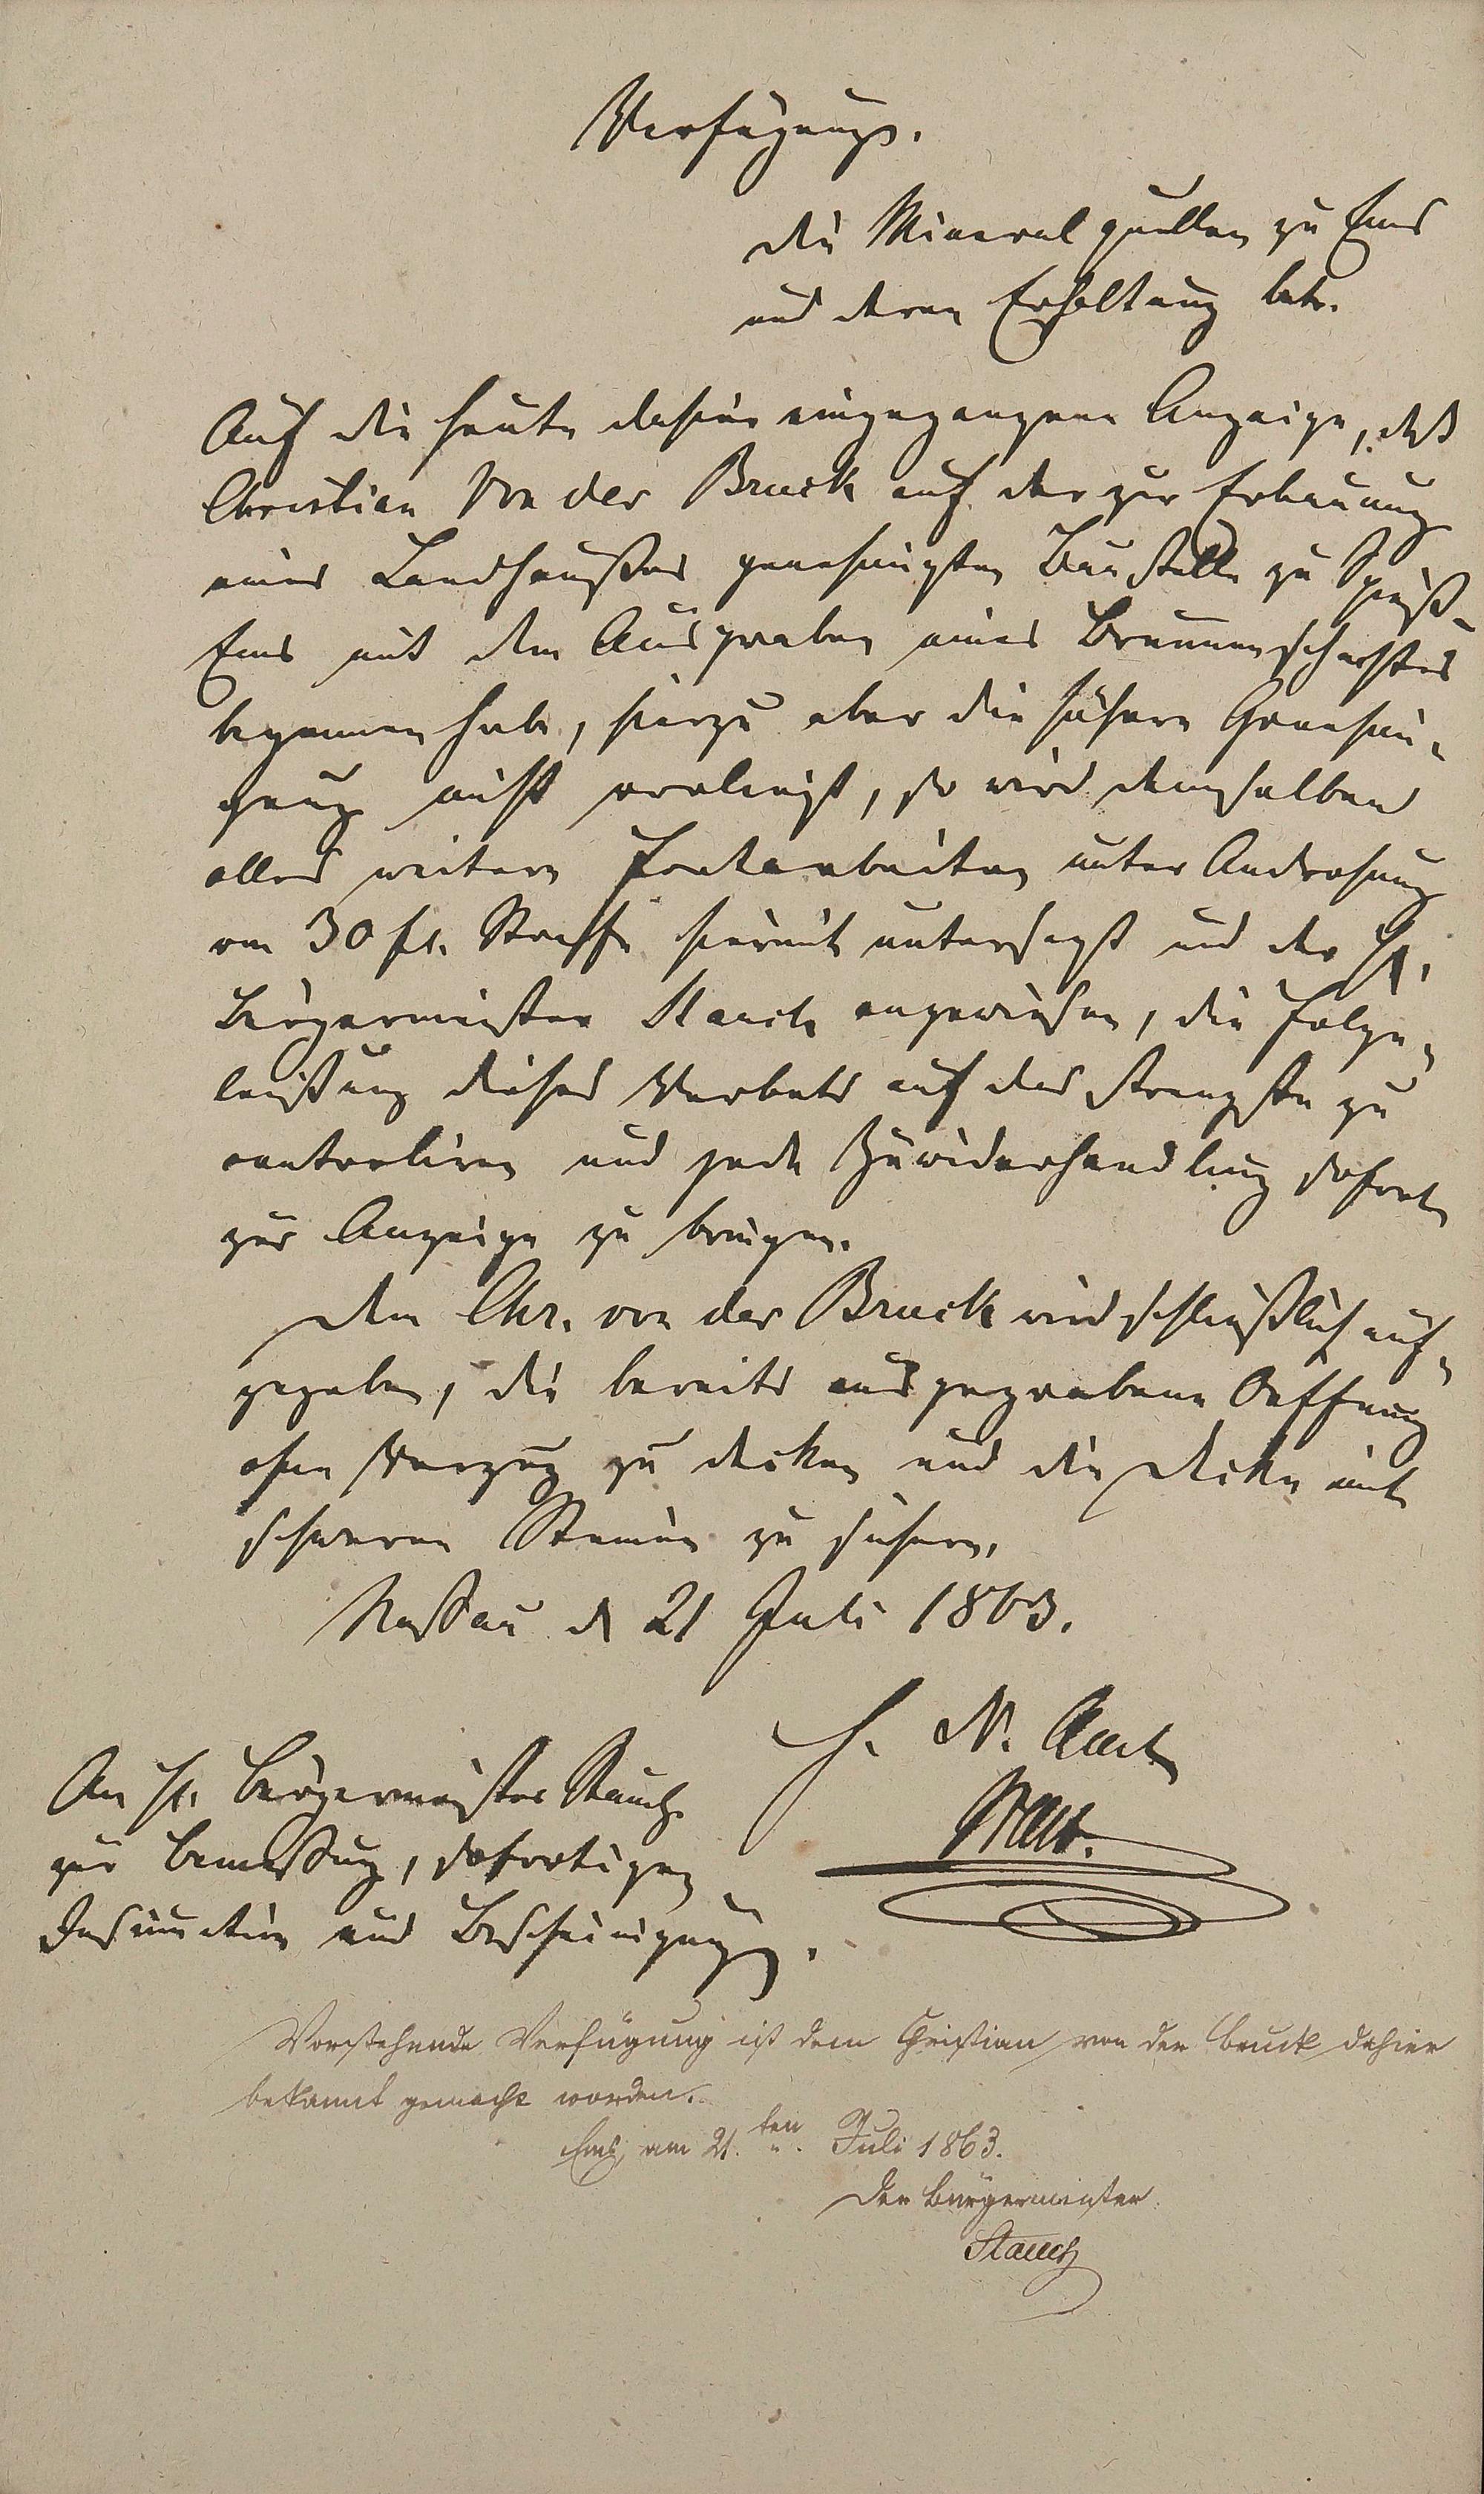 Verfügung.
die Mineralquellen zu Ems
und deren Erhaltung betr.
Auf die heute dahier eingegangene Anzeige, daß
Christian Von der Bruck auf der zur Erbauung
eines Landhaußes genehmigten Baustelle zu Spieß-
Ems mit dem Ausgraben eines Brunnenschachtes
begonnen habe, hierzu aber die höhere Genehmi-
gung nicht vorliegt, so wird demselben
alles weitere Fortarbeiten unter Androhung
von 30 fl. Straffe hiermit untersagt und der H.
Bürgermeister Stauch angewiesen, die Folge-
leistung dieses Verbots auf das strengste zu
controliren und jede Zuwiderhandlung sofort
zur Anzeige zu bringen.
Dem Chr. von der Bruck wird schließlich auf-
gegeben, die bereits ausgegrabene Oeffnung
ohne Verzug zu decken und die Decke mit
schweren Steinen zu sichern.
Nassau d 21 Juli 1863.
H. N. Amt
An H. Bürgermeister Stauch
zur Bemessung, sofortigen
Insinuation und Bescheinigung.
Vorstehende Verfügung ist dem Christian von der Bruck dahier
bekannt gemacht worden.
Ems, am 21.ten Juli 1863.
Der Bürgermeister
Stauch